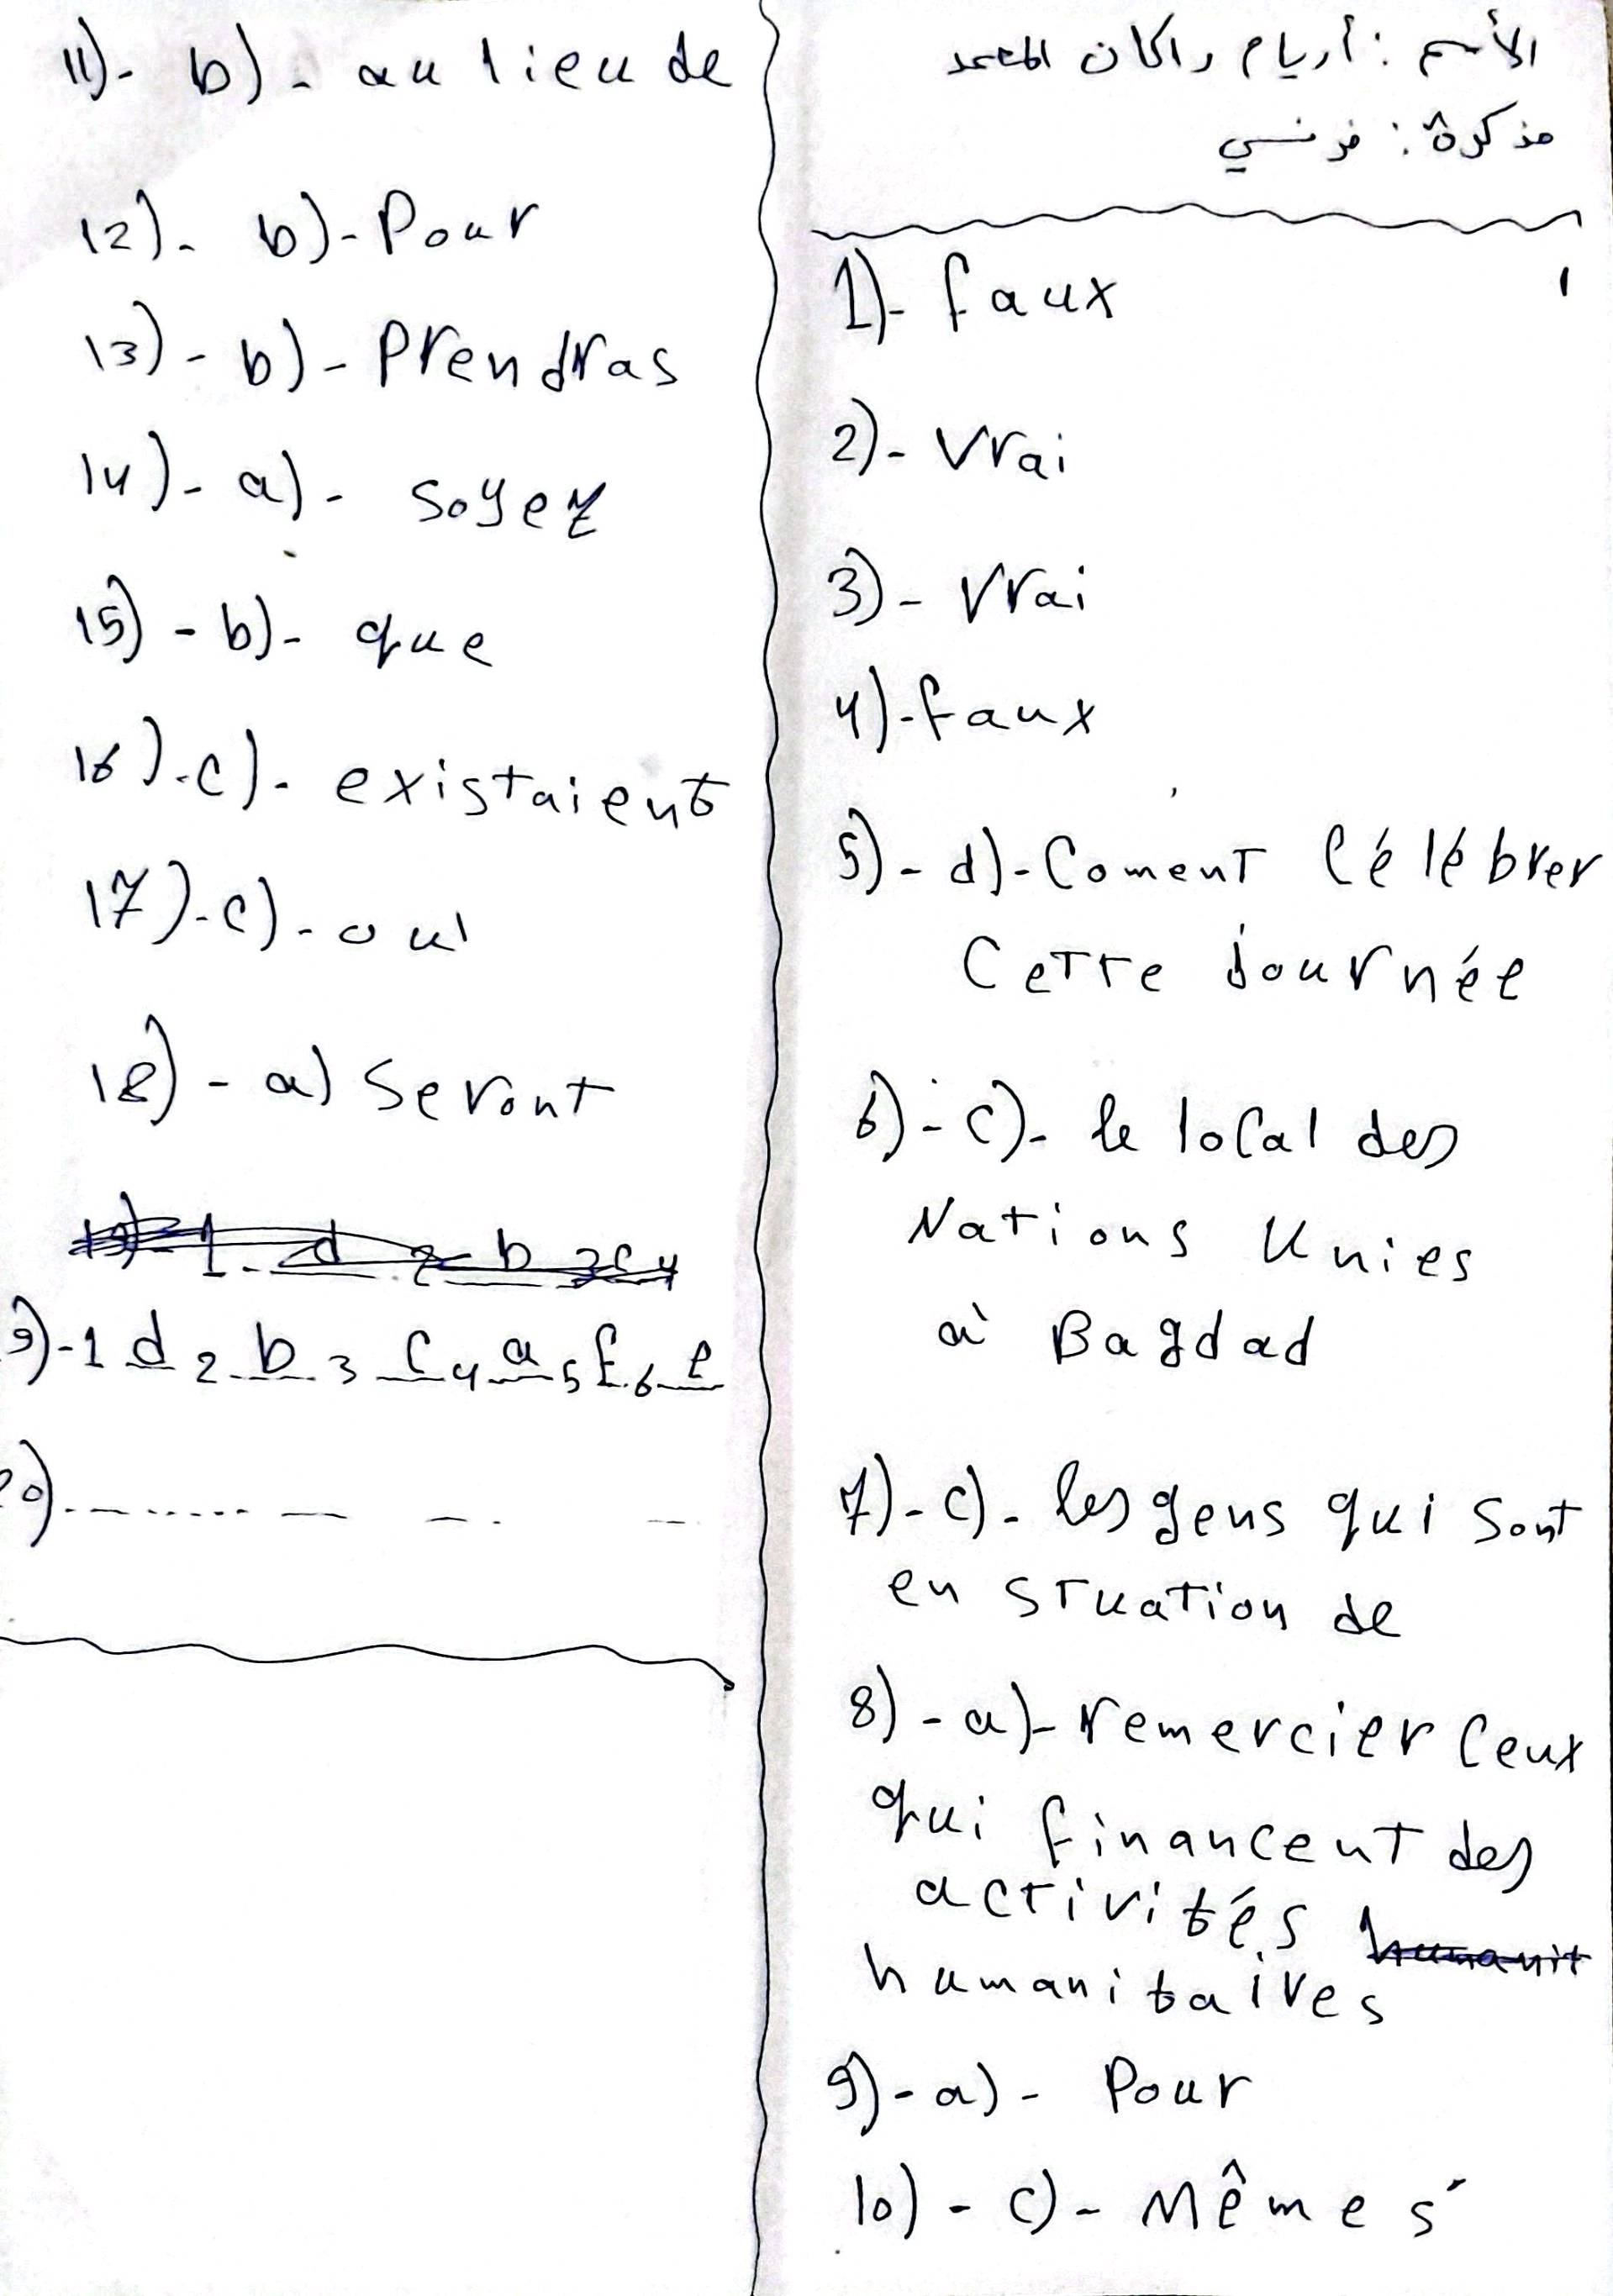 الأسم : أريام راكان المعمد
مذكرة : فرنسي
1)- faux
2)- Vrai
3)- Vrai
4)- faux
5)- d)- Coment Célébrer
Cette journée
6)- c)- le local des
Nations Unies
à Bagdad
7)- c)- les gens qui sont
en stuation de
8)- a)- remercier ceux
qui financent des
activités
humanitaires
9)- a)- Pour
10)- c)- Même s'
11)- b)- au lieu de
12)- b)- Pour
13)- b)- Prendras
14)- a)- soyez
15)- b)- que
16)- c)- existaient
17)- c)- oui
18)- a) Seront
9)-1 d 2 b 3 c 4 a 5 f 6 e
20)- ........